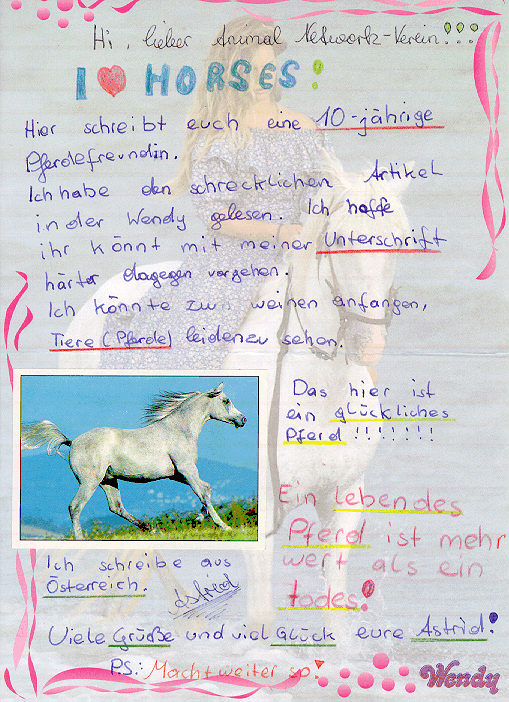 Hi, lieber Animal Network-Verein!!!
I ♥ HORSES!
Hier schreibt euch eine 10-jährige
Pferdefreundin.
Ich habe den schrecklichen Artikel
in der Wendy gelesen. Ich hoffe
ihr könnt mit meiner Unterschrift
härter dagegen vorgehen.
Ich könnte zum weinen anfangen,
Tiere (Pferde) leiden zu sehen.
Das hier ist
ein glückliches
Pferd!!!!!!!
Ein lebendes
Pferd ist mehr
wert als ein
todes!
Ich schreibe aus
Österreich.
Astrid
Viele Grüße und viel Glück eure Astrid!
P.S.: Macht weiter so!
Wendy